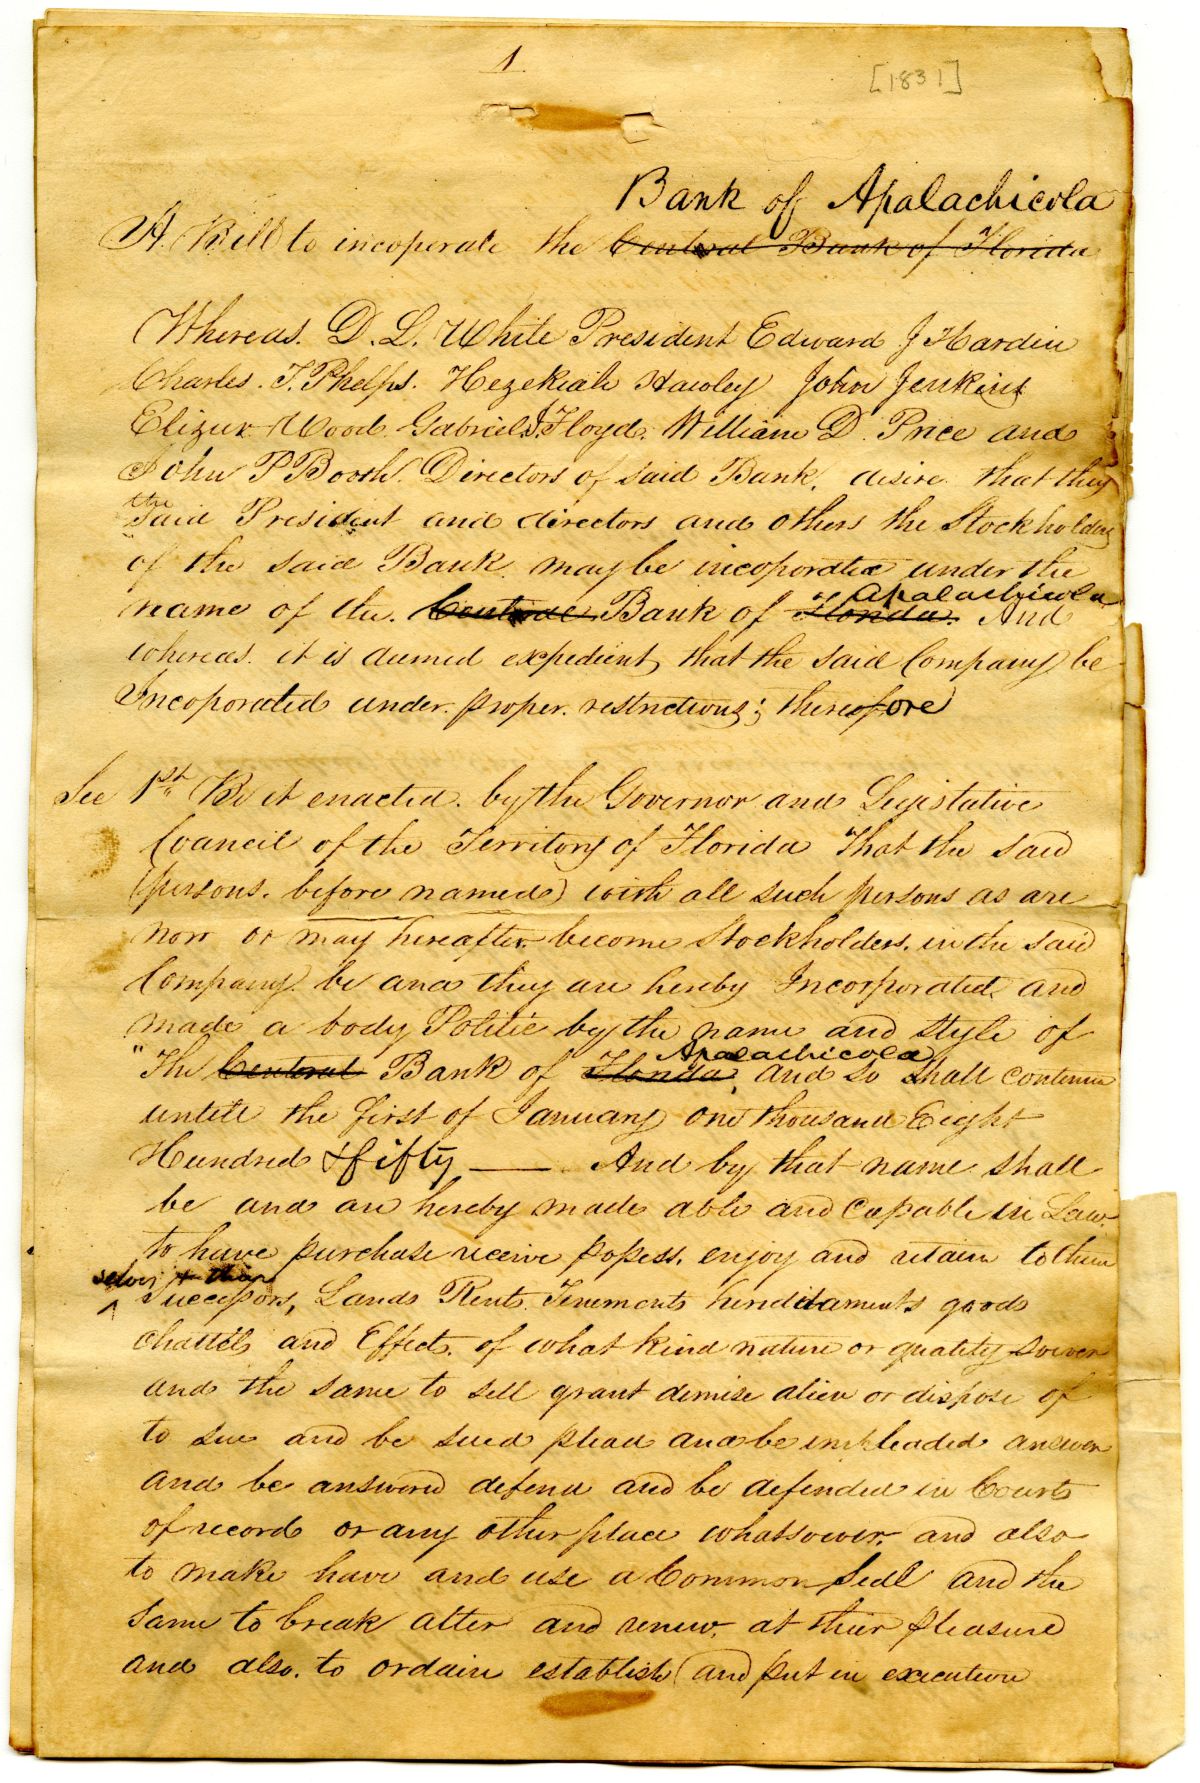 1
[1831]
Bank of Apalachicola
A Bill to incoperate the Central Bank of Florida
Whereas. D. L. White President Edward J Hardin
Charles. T. Phelps. Hezekiah Hawley John Jenkins
Elizur Wood. Gabriel J. Floyd. William D. Price and
John P Booth. Directors of said Bank, desire that they
the
said President and directors and others the Stockholders
of the said Bank. may be incoporated under the
Apalachicola
name of the. Central Bank of Florida. And
whereas. it is deemed expedient, that the said Company be
Incoporated under. proper. restrictions; therefore
Sec 1st. Be it enacted. by the Governor and Legistative
Council of the Territory of Florida That the said
(persons. before named) with all such persons as are
now or may hereafter. become Stockholders. in the said
Company be and they are hereby Incorporated. and
made a body Politic by the name and style of
Apalachicola
"The Central Bank of Florida, and so shall continue
until the first of January one thousand Eight
Hundred & fifty — And by that name shall
be and are hereby made able and Capable in Law
to have purchase receive possess. enjoy and retain to them
selves & their
^ Successors, Lands Rents Tenements heriditaments goods
chattels and Effects. of what kind nature or quality soever
and the same to sell grant demise alien or dispose of
to sue and be sued plead and be impleaded answer
and be answered defend and be defended in Courts
of record or any other place whatsoever. and also
to make have and use a Common Seal and the
same to break alter and renew. at their pleasure
and also. to ordain establish and put in execution